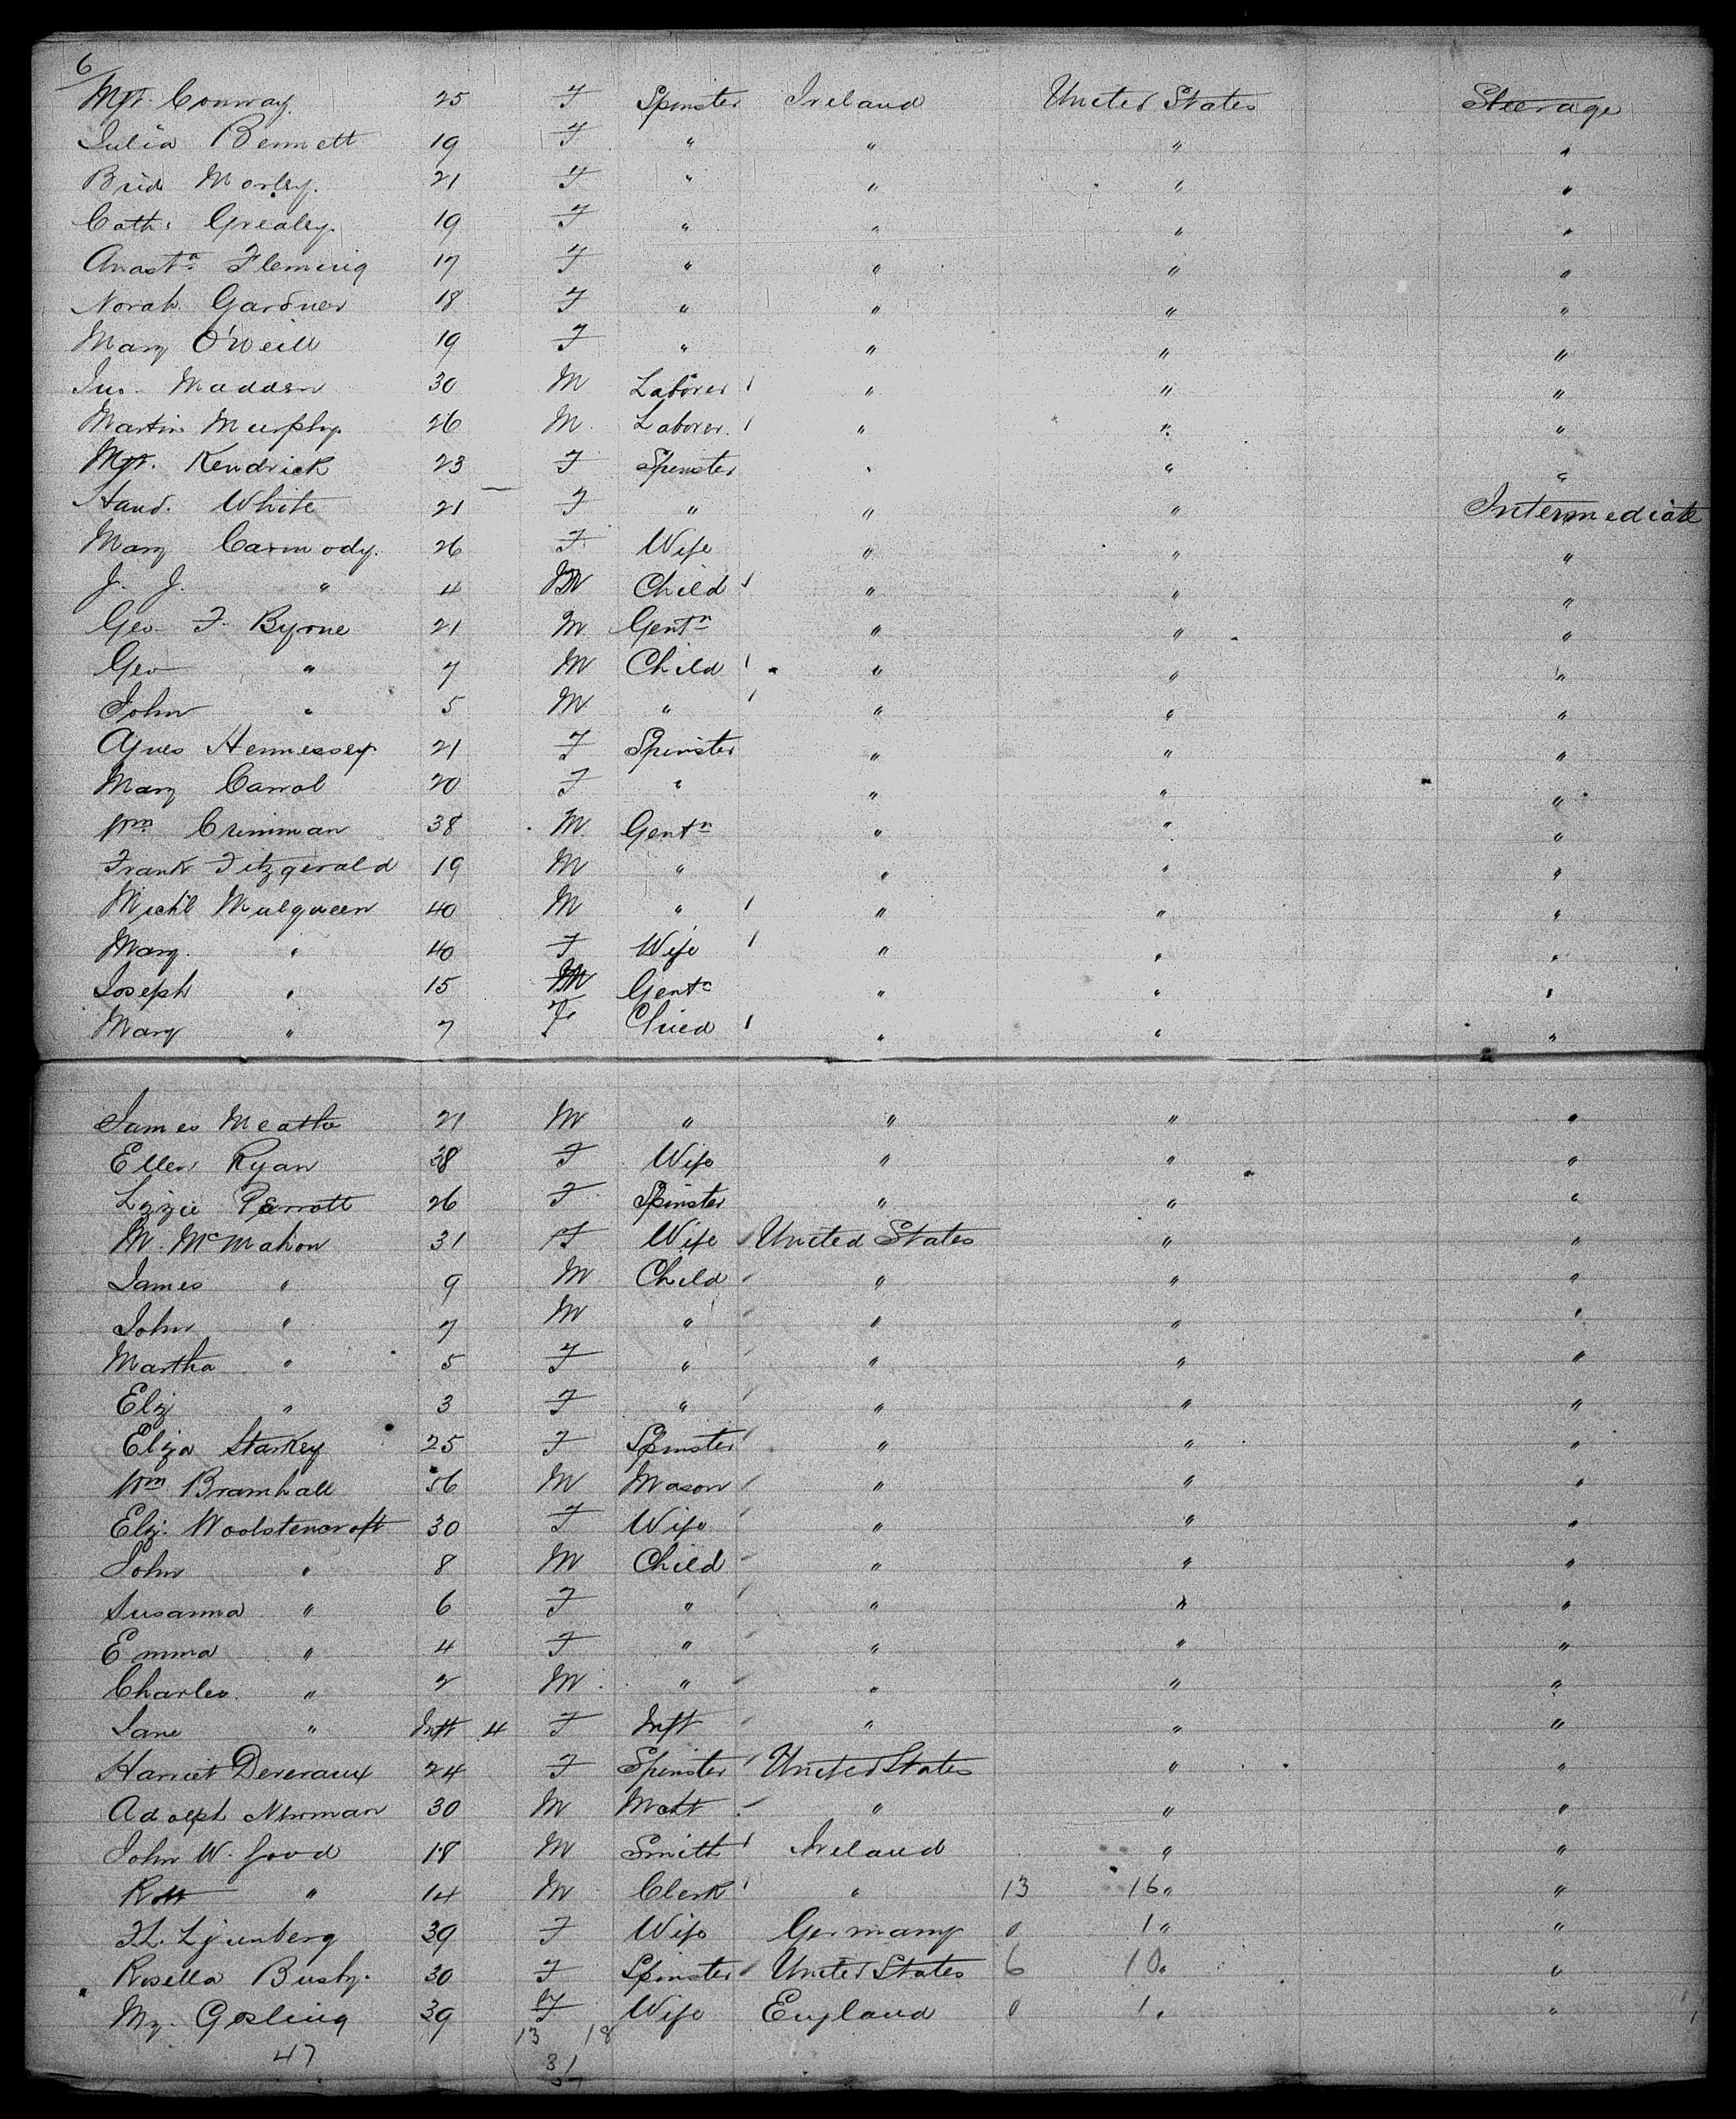 6
Mgt. Conway 25 F Spinster Ireland United States Steerage
Julia Bennett 19 F " " " "
Brid Morley. 21 F " " " "
Cath: Grealey. 19 F " " " "
Anast.a Fleming 17 F " " " "
Norah Gardner 18 F " " " "
Mary O'Neill 19 F " " " "
Jno. Madden 30 M Laborer " " "
Martin Murphy 26 M. Laborer " " "
Mgt. Kendrick 23 F Spinster " " "
Hand. White 21 F " " " Intermediate
Mary Carmody. 26 F Wife " " "
J. J. " 4 M Child " " "
Geo. F. Byrne 21 M Gentn " " "
Geo " 7 M Child " " "
John " 5 M " " " "
Agnes Hennessey 21 F Spinster " " "
Mary Carrol 20 F " " " "
Wm Crimman 38 M Gentn " " "
Frank Fitzgerald 19 M " " " "
Mich'l Mulqueen 40 M " " " "
Mary " 40 F Wife " " "
Joseph " 15 M Gentn " " "
Mary " 7 F Child " " "
James Meathe 21 M " " " "
Ellen Ryan 38 F Wife " " "
Lizzie Parrott 26 F Spinster " " "
M. McMahon 31 F Wife United States " "
James " 9 M Child " " "
John " 7 M " " " "
Martha " 5 F " " " "
Eliz " 3 F " " " "
Eliza Starkey 25 F Spinster " " "
Wm Bramhall 56 M Mason " " "
Eliz. Woolstencroft 30 F Wife " " "
John " 8 M Child " " "
Susanna " 6 F " " " "
Emma " 4 F " " " "
Charles " 2 M " " " "
Jane " Inft 4 F Inft " " "
Harriet Devereaux 24 F Spinster United States " "
Adolph Newman 30 M Mcht " " "
John W. Good 18 M Smith Ireland " "
Robt " 14 M Clerk " 13 16 " "
H. Ljunberg 39 F Wife Germany 0 1 " "
Rosella Busby. 30 F Spinster United States 6 10 " "
My. Gosling 39 F Wife England 0 1 " "
13 18
47 31